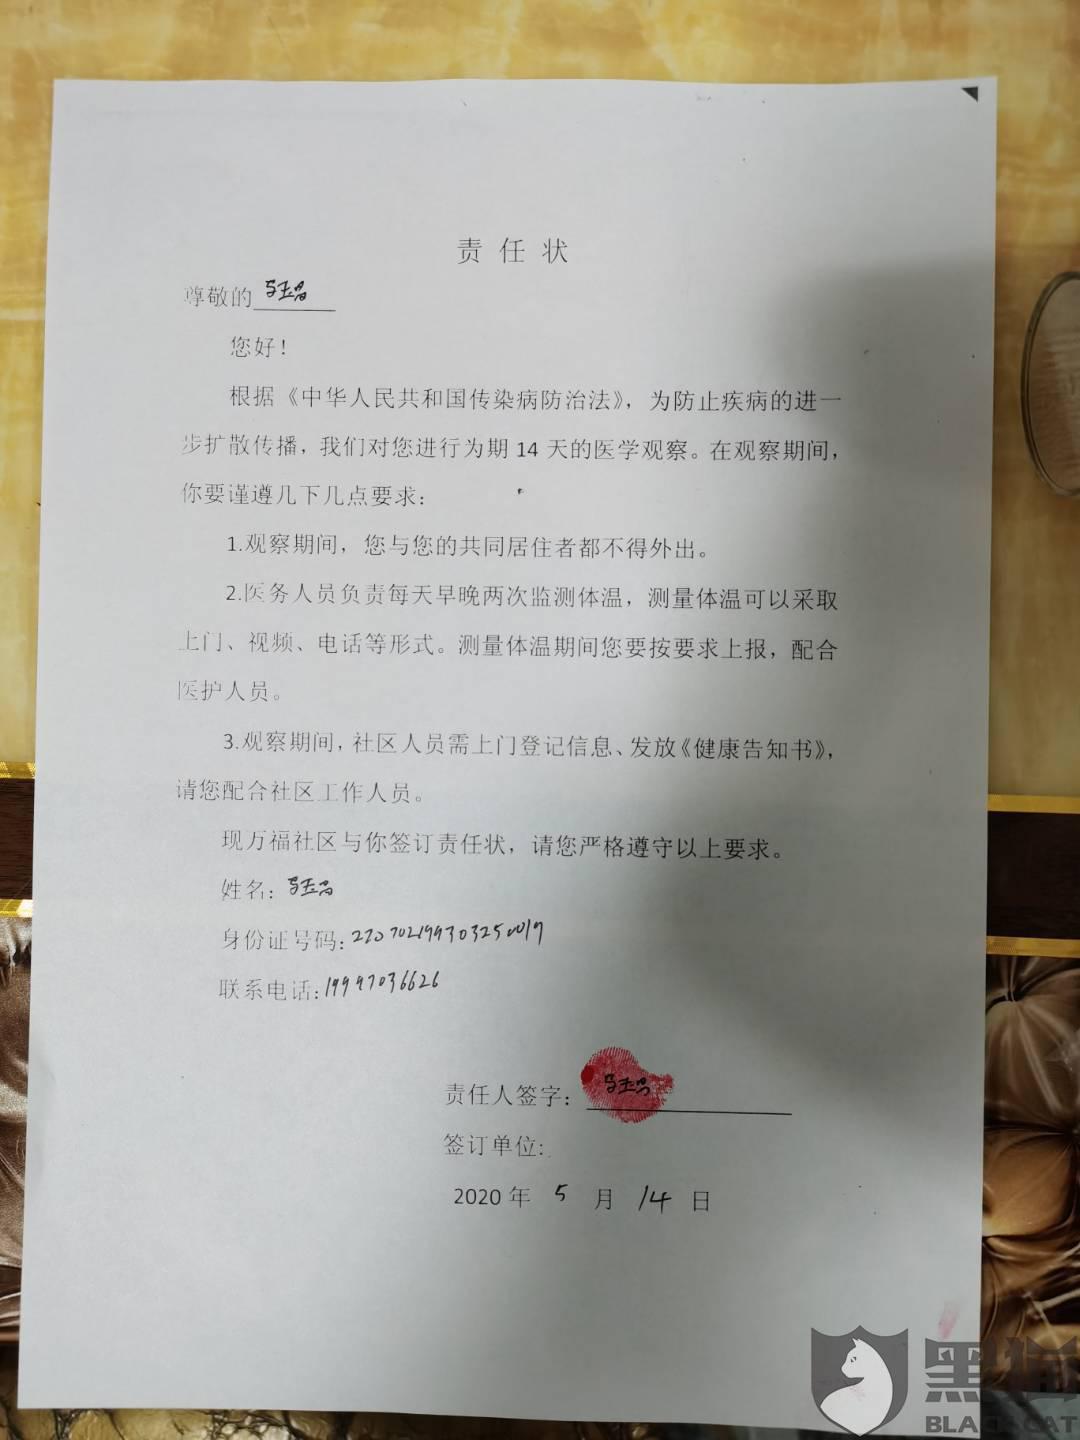 责任状
尊敬的
您好！
根据《中华人民共和国传染病防治法》，为防止疾病的进一
步扩散传播，我们对您进行为期 14 天的医学观察。在观察期间，
你要谨遵几下几点要求：
1.观察期间，您与您的共同居住者都不得外出。
2.医务人员负责每天早晚两次监测体温，测量体温可以采取
上门、视频、电话等形式。测量体温期间您要按要求上报，配合
医护人员。
3.观察期间，社区人员需上门登记信息、发放《健康告知书》，
请您配合社区工作人员。
现万福社区与你签订责任状，请您严格遵守以上要求。
姓名：
身份证号码：
联系电话：19997036626
责任人签字：
签订单位:
2020 年 5 月 14 日
黑猫
BLACK CAT